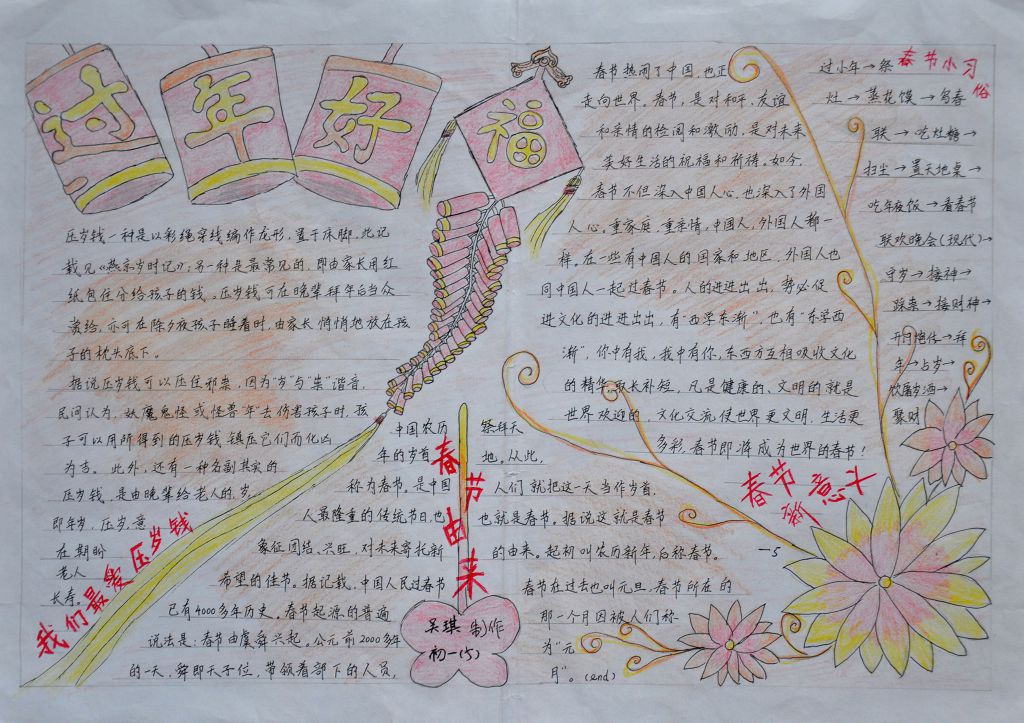 过年好
福
压岁钱一种是以彩绳穿线编作龙形，置于床脚，此记
载见《燕京岁时记》；另一种是最常见的，即由家长用红
纸包住分给孩子的钱。压岁钱可在晚辈拜年后当众
赏给，亦可在除夕夜孩子睡着时，由家长悄悄地放在孩
子的枕头底下。
据说压岁钱可以压住邪祟，因为"岁"与"祟"谐音，
民间认为，妖魔鬼怪或怪兽"年"去伤害孩子时，孩
子可以用所得到的压岁钱镇压它们而化凶
为吉。此外，还有一种名副其实的
压岁钱，是由晚辈给老人的，岁
即年岁，压岁，意
在期盼
老人
长寿。
我们最爱压岁钱
中国农历
年的岁首
称为春节。是中国
人最隆重的传统节日，也
象征团结、兴旺，对未来寄托新
希望的佳节。据记载，中国人民过春节
已有4000多年历史。春节起源的普遍
说法是：春节由虞舜兴起。公元前2000多年
的一天，舜即天子位，带领着部下的人员，
春节由来
祭拜天
地。从此，
人们就把这一天当作岁首，
也就是春节。据说这就是春节
的由来。起初叫农历新年，后称春节。
春节在过去也叫元旦，春节所在的
那一个月因被人们称
为"元
月"。(end)
吴琪 制作
初一(5)
春节热闹了中国，也正
走向世界。春节，是对和平、友谊
和亲情的检阅和激励，是对未来
美好生活的祝福和祈祷。如今，
春节不但深入中国人心，也深入了外国
人心。重家庭、重亲情，中国人，外国人都一
样。在一些有中国人的国家和地区，外国人也
同中国人一起过春节。人的进进出出，势必促
进文化的进进出出，有"西学东渐"，也有"东学西
渐"，你中有我，我中有你，东西方互相吸收文化
的精华，取长补短，凡是健康的、文明的就是
世界欢迎的，文化交流使世界更文明，生活更
多彩，春节即将成为世界的春节！
春节新意头
春节小习俗
过小年→祭
灶→蒸花馍→写春
联→吃灶糖→
扫尘→置天地桌→
吃年夜饭→看春节
联欢晚会(现代)→
守岁→接神→
踩祟→接财神→
开门炮仗→拜
年→占岁→
饮屠苏酒→
聚财